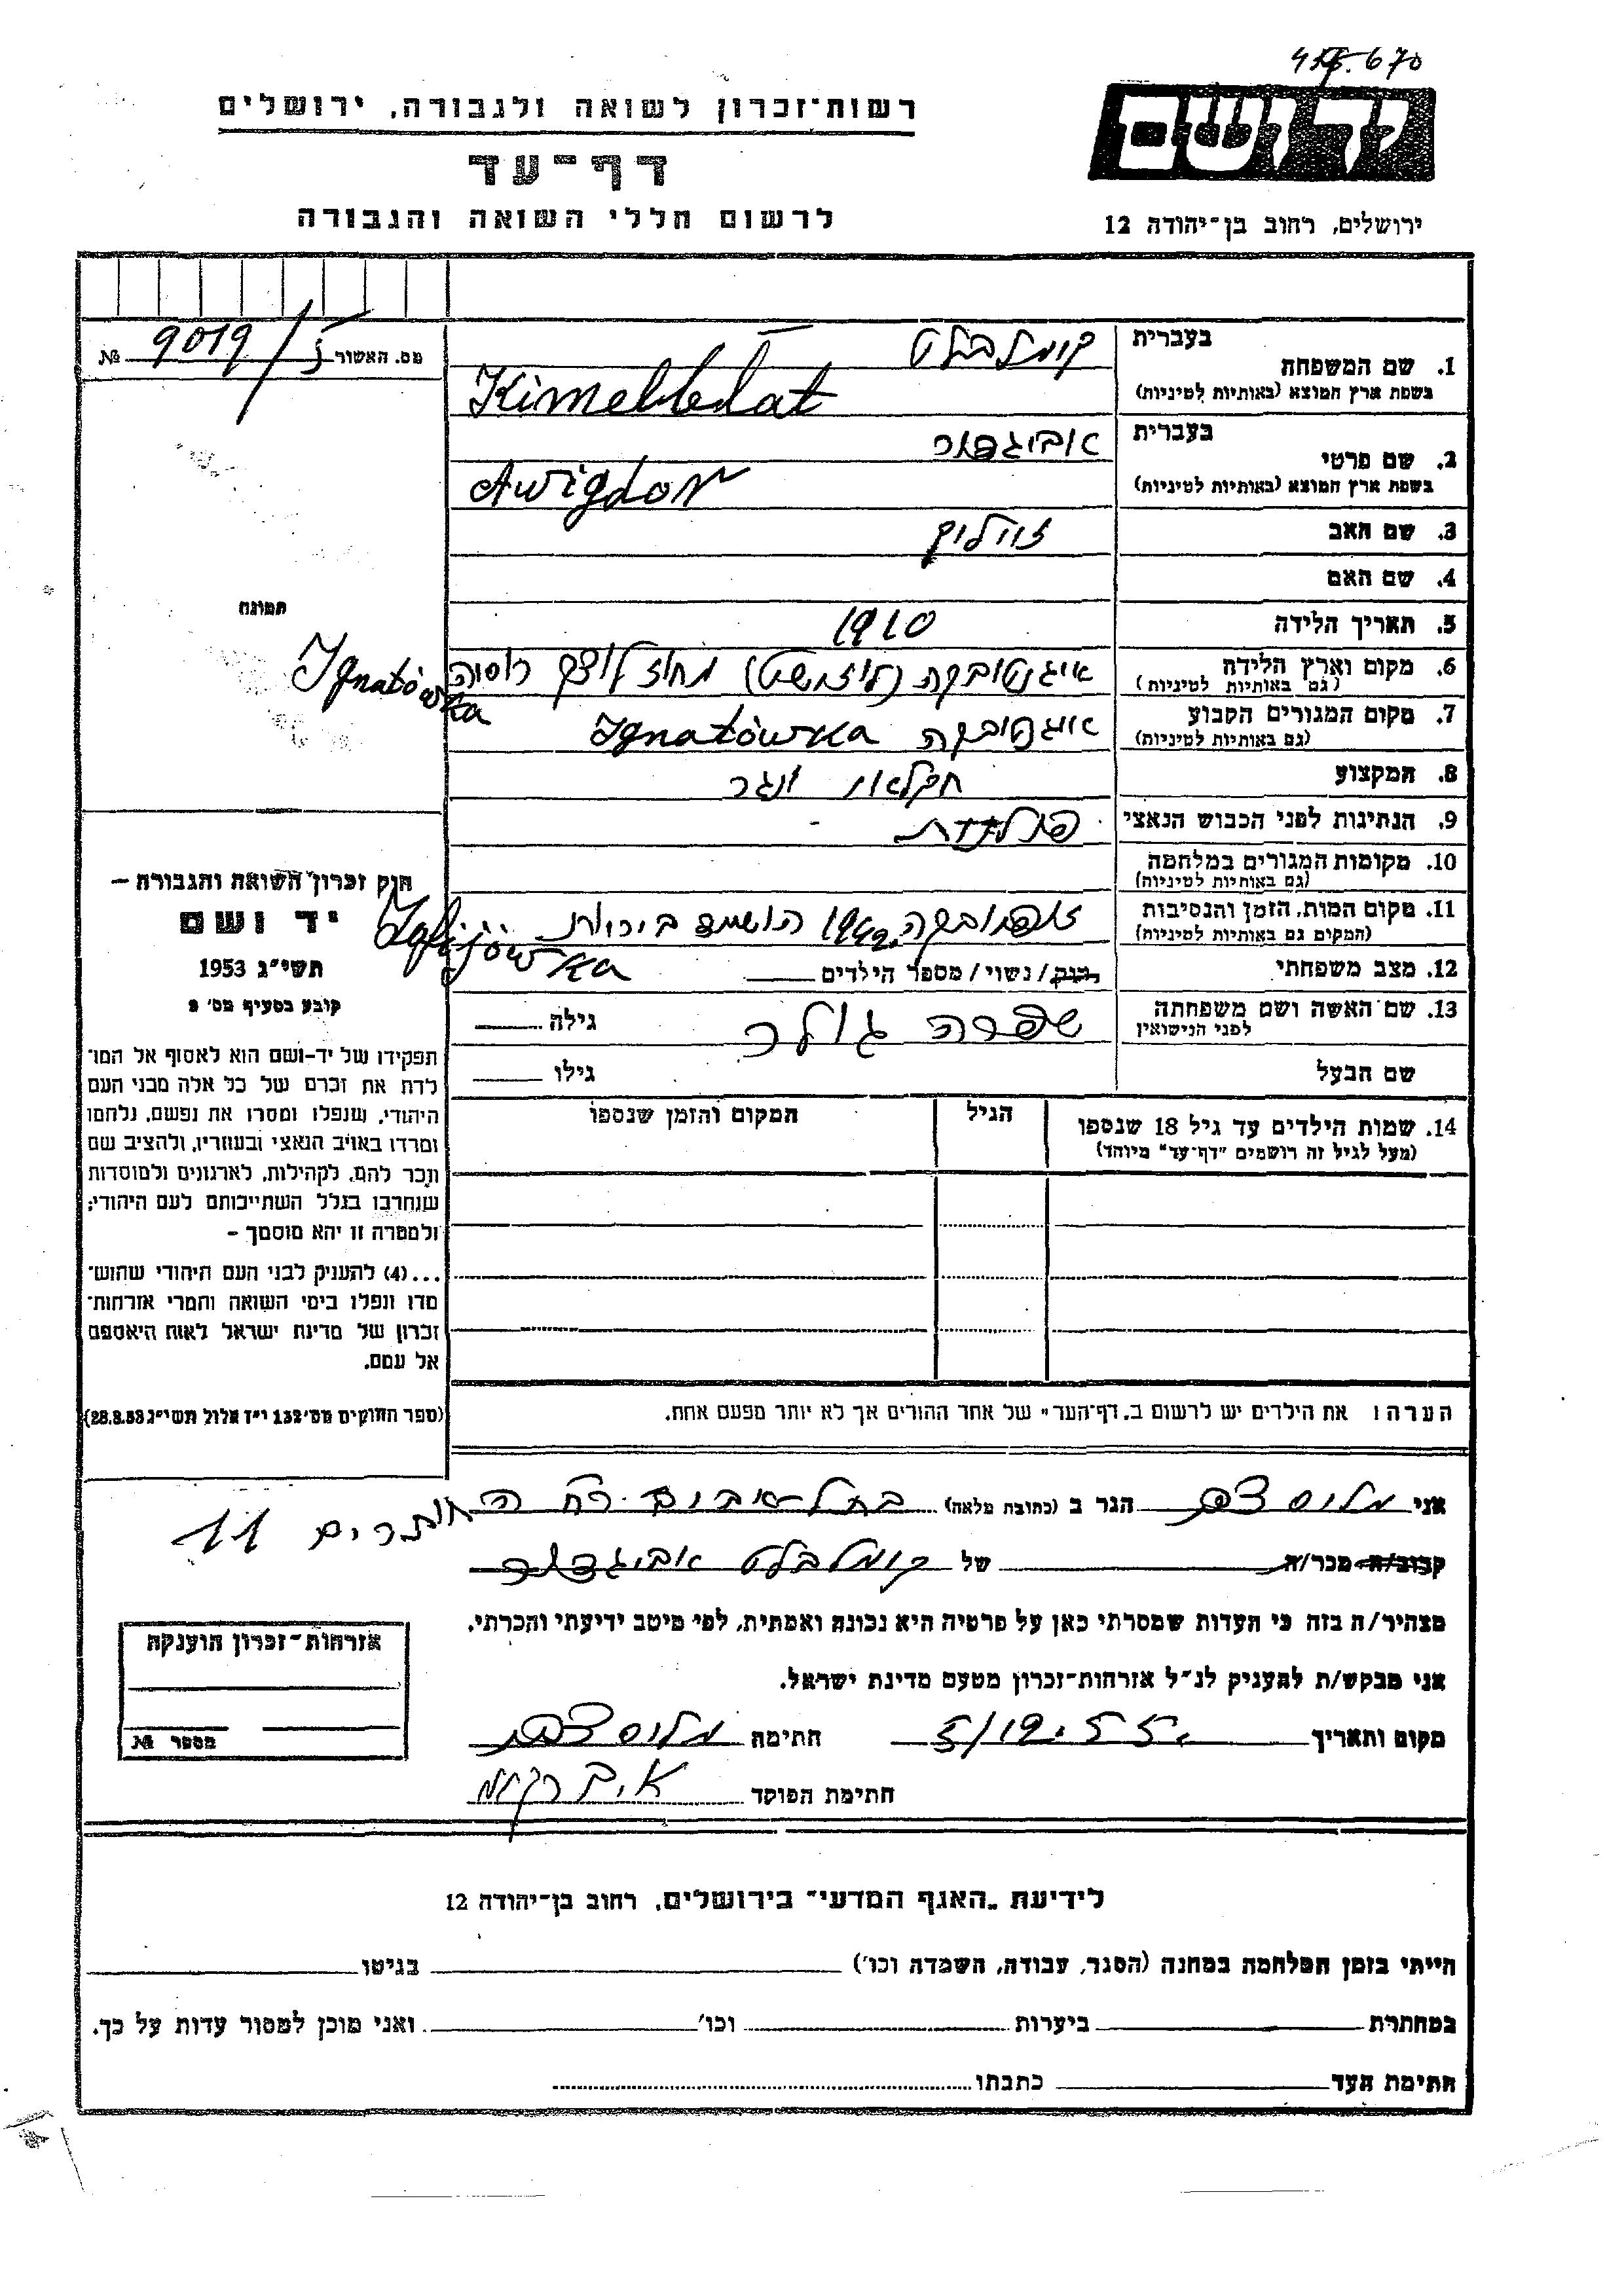 455.670
יד ושם
רשות-זכרון לשואה ולגבורה, ירושלים
דף-עד
לרשום חללי השואה והגבורה
ירושלים, רחוב בן-יהודה 12
מס. האשור 5/9019 №
1. שם המשפחה
בעברית קימלבלט
בשפת ארץ המוצא (באותיות לטיניות) Kimelblat
2. שם פרטי
בעברית אביגדור
בשפת ארץ המוצא (באותיות לטיניות) Awigdor
3. שם האב זווליק
4. שם האם
5. תאריך הלידה 1910
6. מקום וארץ הלידה איגנטובקה (לוזישט) מחוז לוצק רוסיה Ignatówka
(גם באותיות לטיניות)
7. מקום המגורים הקבוע איגנטובקה Ignatówka
(גם באותיות לטיניות)
8. המקצוע חקלאי ונגר
9. הנתינות לפני הכבוש הנאצי פולנית
10. מקומות המגורים במלחמה
(גם באותיות לטיניות)
11. מקום המות, הזמן והנסיבות 1942
(המקום גם באותיות לטיניות)
12. מצב משפחתי רווק/נשוי/מספר הילדים
13. שם האשה ושם משפחתה שפרה גולר גילה
לפני הנישואין
שם הבעל גילו
14. שמות הילדים עד גיל 18 שנספו הגיל המקום והזמן שנספו
(מעל לגיל זה רושמים "דף-עד" מיוחד)
הערה: את הילדים יש לרשום ב"דף-העד" של אחד ההורים אך לא יותר מפעם אחת.
תמונה
חוק זכרון השואה והגבורה –
יד ושם
תשי"ג 1953
קובע בסעיף מס' 2
תפקידו של יד-ושם הוא לאסוף אל המו־
לדת את זכרם של כל אלה מבני העם
היהודי, שנפלו ומסרו את נפשם, נלחמו
ומרדו באויב הנאצי ובעוזריו, ולהציב שם
וזכר להם, לקהילות, לארגונים ולמוסדות
שנחרבו בגלל השתייכותם לעם היהודי;
ולמטרה זו יהא מוסמך –
...(4) להעניק לבני העם היהודי שהוש־
מדו ונפלו בימי השואה והמרי אזרחות־
זכרון של מדינת ישראל לאות היאספם
אל עמם.
(ספר החוקים מס' 132 י"ז אלול תשי"ג 28.8.53)
אני הגר ב (כתובת מלאה) בתל-אביב רח' החותרים 11
קרוב/ה מכר/ה של קימלבלט אביגדור
מצהיר/ה בזה כי העדות שמסרתי כאן על פרטיה היא נכונה ואמתית, לפי מיטב ידיעתי והכרתי.
אני מבקש/ת להעניק לנ"ל אזרחות-זכרון מטעם מדינת ישראל.
מקום ותאריך 5/12.55. חתימה
חתימת הפוקד
אזרחות-זכרון הוענקה
מספר №
לידיעת "האגף המדעי" בירושלים, רחוב בן-יהודה 12
הייתי בזמן המלחמה במחנה (הסגר, עבודה, השמדה וכו') בגיטו
במחתרת ביערות וכו' ואני מוכן למסור עדות על כך.
חתימת העד כתבתו